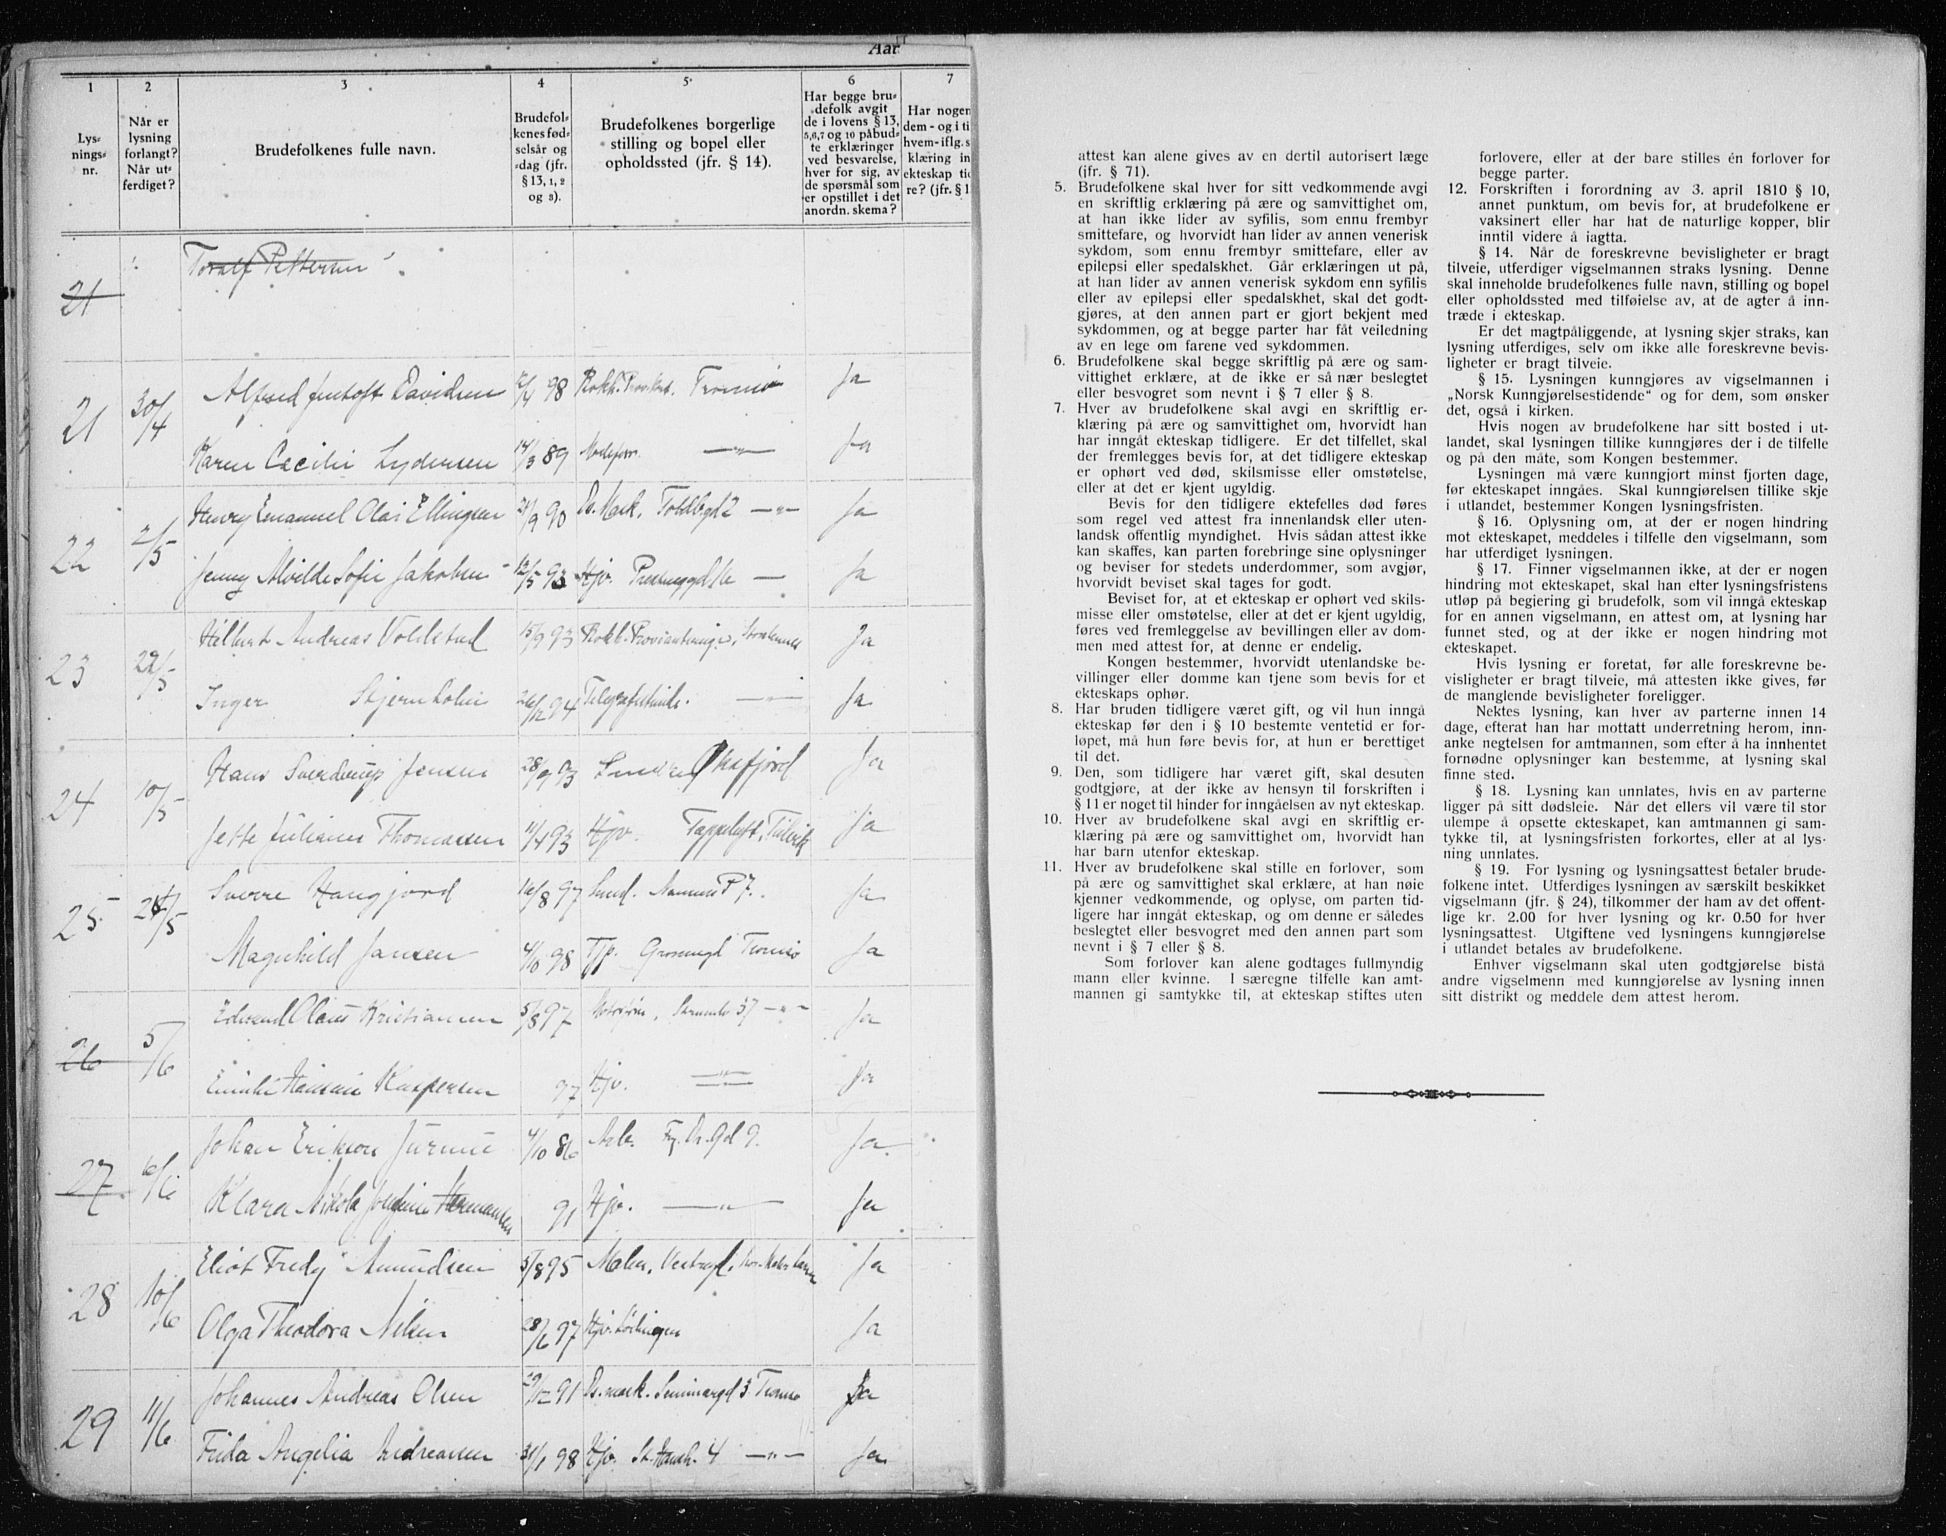 Aar
1
2
3
4
5
6
7
Lys-
nings-
nr.
Når er
lysning
forlangt?
Når ut-
ferdiget?
Brudefolkenes fulle navn.
Brudefol-
kenes fød-
selsår og
-dag (jfr.
§ 13, 1, 2
og 3).
Brudefolkenes borgerlige
stilling og bopel eller
opholdssted (jfr. § 14).
Har begge bru-
defolk avgit
de i lovens § 13,
5,6,7 og 10 påbud-
te erklæringer
ved besvarelse,
hver for sig, av
de spørsmål som
er opstillet i det
anordn. skema?
Har nogen
dem - og i ti
hvem - iflg. s
klæring in
ekteskap tid
re? (jfr. § 1
21 Toralf Pettersen
21 30/4 Alfred Jentoft Davidsen 98 Tromsø Ja
Karen Cecilie Lydersen 14/3 89 Ja
22 2/5 Henry Emanuel Olai Ellingsen 21/9 90 Ds. Mark. Toldbgd 2 Ja
Jenny Alvilde Sofie Jakobsen 12/5 93 Hjv. Ja
23 22/5 Hilbert Andreas Voldstad 15/9 93 Ja
Inger Stjernholm 26/12 94 Ja
24 10/5 Hans Sverdrup Jensen 28/9 93 Øksfjord Ja
Jette Juliane Thomassen 11/4 93 Hjv. Tappeluft, Ja
25 24/5 Sverre Haugfjord 16/8 97 Ja
Magnhild Jansen 4/10 98 Tjp. Tromsø Ja
26 5/6 Edvard Olaus Kristiansen 5/8 97 Ja
Kaspersen 97 Hjv. Ja
27 6/6 Johan Erikson 4/10 86 Arb. Ja
Klara Nikola Josefine Hermansen 91 Hjv. Ja
28 10/6 Eliot Fredy Amundsen 5/8 95 Maler, Ja
Olga Theodora Nilsen 28/6 97 Hjv. Lødingen Ja
29 11/6 Johannes Andreas Olsen 29/12 91 Ds. mark. Seminargd 3 Tromsø Ja
Frida Angelia Andreassen 31/1 98 Hjv. Ja
attest kan alene gives av en dertil autorisert læge
(jfr. § 71).
5. Brudefolkene skal hver for sitt vedkommende avgi
en skriftlig erklæring på ære og samvittighet om,
at han ikke lider av syfilis, som ennu frembyr
smittefare, og hvorvidt han lider av annen venerisk
sykdom, som ennu frembyr smittefare, eller av
epilepsi eller spedalskhet. Går erklæringen ut på,
at han lider av annen venerisk sykdom enn syfilis
eller av epilepsi eller spedalskhet, skal det godt-
gjøres, at den annen part er gjort bekjent med
sykdommen, og at begge parter har fåt veiledning
av en lege om farene ved sykdommen.
6. Brudefolkene skal begge skriftlig på ære og sam-
vittighet erklære, at de ikke er så nær beslegtet
eller besvogret som nevnt i § 7 eller § 8.
7. Hver av brudefolkene skal avgi en skriftlig er-
klæring på ære og samvittighet om, hvorvidt han
har inngåt ekteskap tidligere. Er det tilfellet, skal
der fremlegges bevis for, at det tidligere ekteskap
er ophørt ved død, skilsmisse eller omstøtelse,
eller at det er kjent ugyldig.
Bevis for den tidligere ektefelles død føres
som regel ved attest fra innenlandsk eller uten-
landsk offentlig myndighet. Hvis sådan attest ikke
kan skaffes, kan parten forebringe sine oplysninger
og beviser for stedets underdommer, som avgjør,
hvorvidt beviset skal tages for godt.
Beviset for, at et ekteskap er ophørt ved skils-
misse eller omstøtelse, eller at det er kjent ugyldig,
føres ved fremleggelse av bevillingen eller av dom-
men med attest for, at denne er endelig.
Kongen bestemmer, hvorvidt utenlandske be-
villinger eller domme kan tjene som bevis for et
ekteskaps ophør.
8. Har bruden tidligere været gift, og vil hun inngå
ekteskap før den i § 10 bestemte ventetid er for-
løpet, må hun føre bevis for, at hun er berettiget
til det.
9. Den, som tidligere har været gift, skal desuten
godtgjøre, at der ikke av hensyn til forskriften i
§ 11 er noget til hinder for inngåelsen av nyt ekteskap.
10. Hver av brudefolkene skal avgi en skriftlig er-
klæring på ære og samvittighet om, hvorvidt han
har barn utenfor ekteskap.
11. Hver av brudefolkene skal stille en forlover, som
på ære og samvittighet skal erklære, at han nøie
kjenner vedkommende, og oplyse, om parten tid-
ligere har inngåt ekteskap, og om denne er således
beslegtet eller besvogret med den annen part som
nevnt i § 7 eller § 8.
Som forlover kan alene godtages fullmyndig
mann eller kvinne. I særegne tilfelle kan amt-
mannen gi samtykke til, at ekteskap stiftes uten
forlovere, eller at der bare stilles én forlover for
begge parter.
12. Forskriften i forordning av 3. april 1810 § 10,
annet punktum, om bevis for, at brudefolkene er
vaksinert eller har hat de naturlige kopper, blir
inntil videre å iagtta.
§ 14. Når de foreskrevne bevisligheter er bragt
tilveie, utferdiger vigselmannen straks lysning. Denne
skal inneholde brudefolkenes fulle navn, stilling og bopel
eller opholdssted med tilføielse av, at de agter å inn-
træde i ekteskap.
Er det magtpåliggende, at lysning skjer straks, kan
lysning utferdiges, selv om ikke alle foreskrevne bevis-
ligheter er bragt tilveie.
§ 15. Lysningen kunngjøres av vigselmannen i
„Norsk Kunngjørelsestidende“ og for dem, som ønsker
det, også i kirken.
Hvis nogen av brudefolkene har sitt bosted i ut-
landet, skal lysningen tillike kunngjøres der i de tilfelle
og på den måte, som Kongen bestemmer.
Lysningen må være kunngjort minst fjorten dage,
før ekteskapet inngåes. Skal kunngjørelsen tillike skje
i utlandet, bestemmer Kongen lysningsfristen.
§ 16. Oplysning om, at der er nogen hindring
mot ekteskapet, meddeles i tilfelle den vigselmann, som
har utferdiget lysningen.
§ 17. Finner vigselmannen ikke, at der er nogen
hindring mot ekteskapet, skal han efter lysningsfristens
utløp på begjering gi brudefolk, som vil inngå ekteskap
for en annen vigselmann, en attest om, at lysning har
funnet sted, og at der ikke er nogen hindring mot
ekteskapet.
Hvis lysning er foretat, før alle foreskrevne be-
visligheter er bragt tilveie, må attesten ikke gives, før
de manglende bevisligheter foreligger.
Nektes lysning, kan hver av parterne innen 14
dage, efterat han har mottatt underretning herom, inn-
anke negtelsen for amtmannen, som efter å ha innhentet
fornødne oplysninger kan bestemme, at lysning skal
finne sted.
§ 18. Lysning kan unnlates, hvis en av parterne
ligger på sitt dødsleie. Når det ellers vil være til stor
ulempe å opsette ekteskapet, kan amtmannen gi sam-
tykke til, at lysningsfristen forkortes, eller at al lys-
ning unnlates.
§ 19. For lysning og lysningsattest betaler brude-
folkene intet. Utferdiges lysningen av særskilt beskikket
vigselmann (jfr. § 24), tilkommer der ham av det offent-
lige kr. 2.00 for hver lysning og kr. 0.50 for hver
lysningsattest. Utgiftene ved lysningens kunngjørelse
i utlandet betales av brudefolkene.
Enhver vigselmann skal uten godtgjørelse bistå
andre vigselmenn med kunngjørelse av lysning innen
sitt distrikt og meddele dem attest herom.